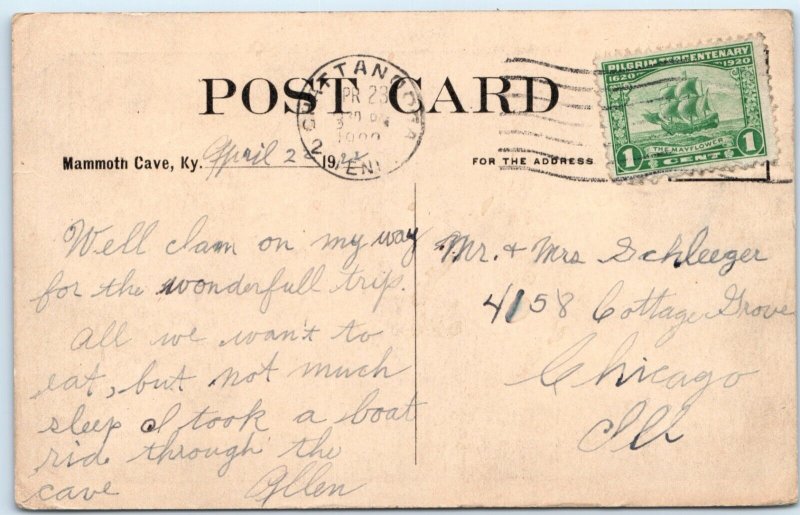 POST CARD
CHATTANOOGA
APR 23
3 30 PM
TENN
2
PILGRIM TERCENTENARY
1620 1920
THE MAYFLOWER
1 CENT 1
Mammoth Cave, Ky. April 22 19
FOR THE ADDRESS
Well clam on my way
for the wonderfull trip.
All we want to
eat, but not much
sleep I took a boat
ride through the
cave Allen
Mr. + Mrs Schleeger
4158 Cottage Grove
Chicago
Ill